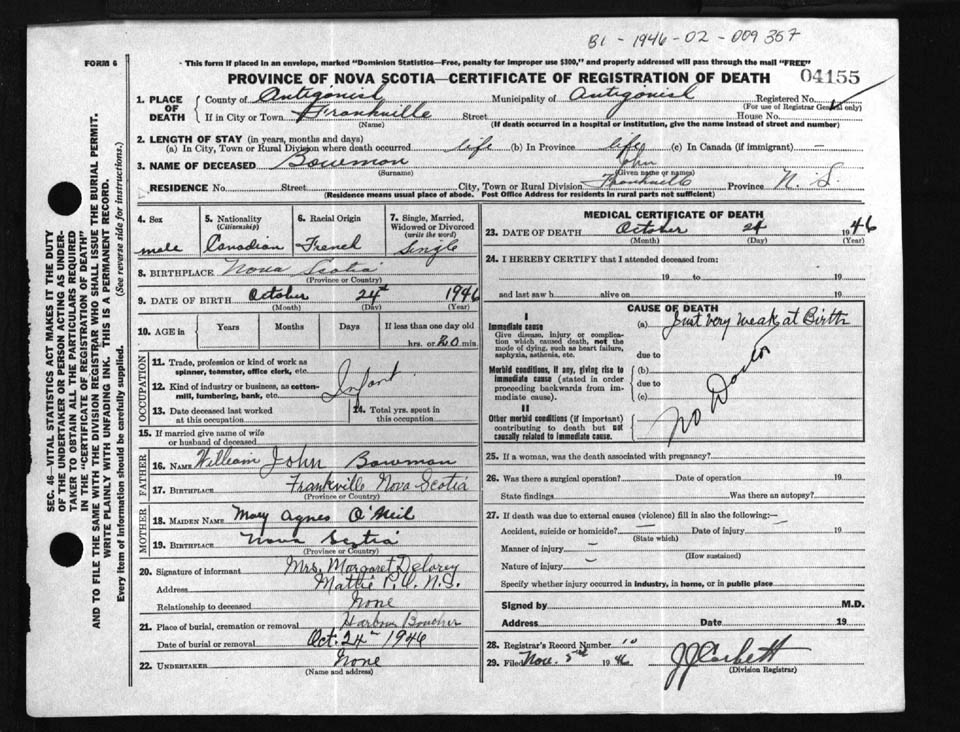 B1 - 1946 - 02 - 009 367
FORM 6
This form if placed in an envelope, marked "Dominion Statistics—Free, penalty for improper use $300," and properly addressed will pass through the mail "FREE"
PROVINCE OF NOVA SCOTIA—CERTIFICATE OF REGISTRATION OF DEATH
04155
1. PLACE OF DEATH County of Antigonish Municipality of Antigonish Registered No.
(For use of Registrar General only)
If in City or Town Frankville Street House No.
(Name) (If death occurred in a hospital or institution, give the name instead of street and number)
2. LENGTH OF STAY (in years, months and days)
(a) In City, Town or Rural Division where death occurred life (b) In Province life (c) In Canada (if immigrant) —
3. NAME OF DECEASED Bowman John
(Surname) (Given name or names)
RESIDENCE No. Street City, Town or Rural Division Frankville Province N. S.
(Residence means usual place of abode. Post Office Address for residents in rural parts not sufficient)
4. Sex male
5. Nationality (Citizenship) Canadian
6. Racial Origin French
7. Single, Married, Widowed or Divorced (write the word) Single
8. BIRTHPLACE Nova Scotia
(Province or Country)
9. DATE OF BIRTH October 24th 1946
(Month) (Day) (Year)
10. AGE in Years Months Days If less than one day old
hrs. or 20 min.
OCCUPATION
11. Trade, profession or kind of work as spinner, teamster, office clerk, etc.
12. Kind of industry or business, as cotton-mill, lumbering, bank, etc.
Infant
13. Date deceased last worked at this occupation
14. Total yrs. spent in this occupation
15. If married give name of wife or husband of deceased
FATHER
16. NAME William John Bowman
17. BIRTHPLACE Frankville Nova Scotia
(Province or Country)
MOTHER
18. MAIDEN NAME Mary Agnes O'Neil
19. BIRTHPLACE Nova Scotia
(Province or Country)
20. Signature of informant Mrs. Margaret Delorey
Address Mattie P.O. N.S.
Relationship to deceased None
21. Place of burial, cremation or removal Harbour Boucher
Date of burial or removal Oct. 24th 1946
22. UNDERTAKER None
(Name and address)
MEDICAL CERTIFICATE OF DEATH
23. DATE OF DEATH October 24 1946
(Month) (Day) (Year)
24. I HEREBY CERTIFY that I attended deceased from:
19 to 19
and last saw h alive on 19
CAUSE OF DEATH
I
Immediate cause
Give disease, injury or complication which caused death, not the mode of dying, such as heart failure, asphyxia, asthenia, etc.
(a) Just very weak at Birth
due to
Morbid conditions, if any, giving rise to immediate cause (stated in order proceeding backwards from immediate cause).
(b)
due to
(c)
No Doctor
II
Other morbid conditions (if important) contributing to death but not causally related to immediate cause.
25. If a woman, was the death associated with pregnancy?
26. Was there a surgical operation? Date of operation 19
State findings Was there an autopsy?
27. If death was due to external causes (violence) fill in also the following:—
Accident, suicide or homicide? — Date of injury 19
(State which)
Manner of injury —
(How sustained)
Nature of injury —
Specify whether injury occurred in industry, in home, or in public place
Signed by M.D.
Address Date 19
28. Registrar's Record Number 10
29. Filed Nov. 5th 1946 J J Corbett
(Division Registrar)
SEC. 46—VITAL STATISTICS ACT MAKES IT THE DUTY
OF THE UNDERTAKER OR PERSON ACTING AS UNDER-
TAKER TO OBTAIN ALL THE PARTICULARS REQUIRED
IN THE "CERTIFICATE OF REGISTRATION OF DEATH"
AND TO FILE THE SAME WITH THE DIVISION REGISTRAR WHO SHALL ISSUE THE BURIAL PERMIT.
WRITE PLAINLY WITH UNFADING INK. THIS IS A PERMANENT RECORD.
Every item of information should be carefully supplied. (See reverse side for instructions.)